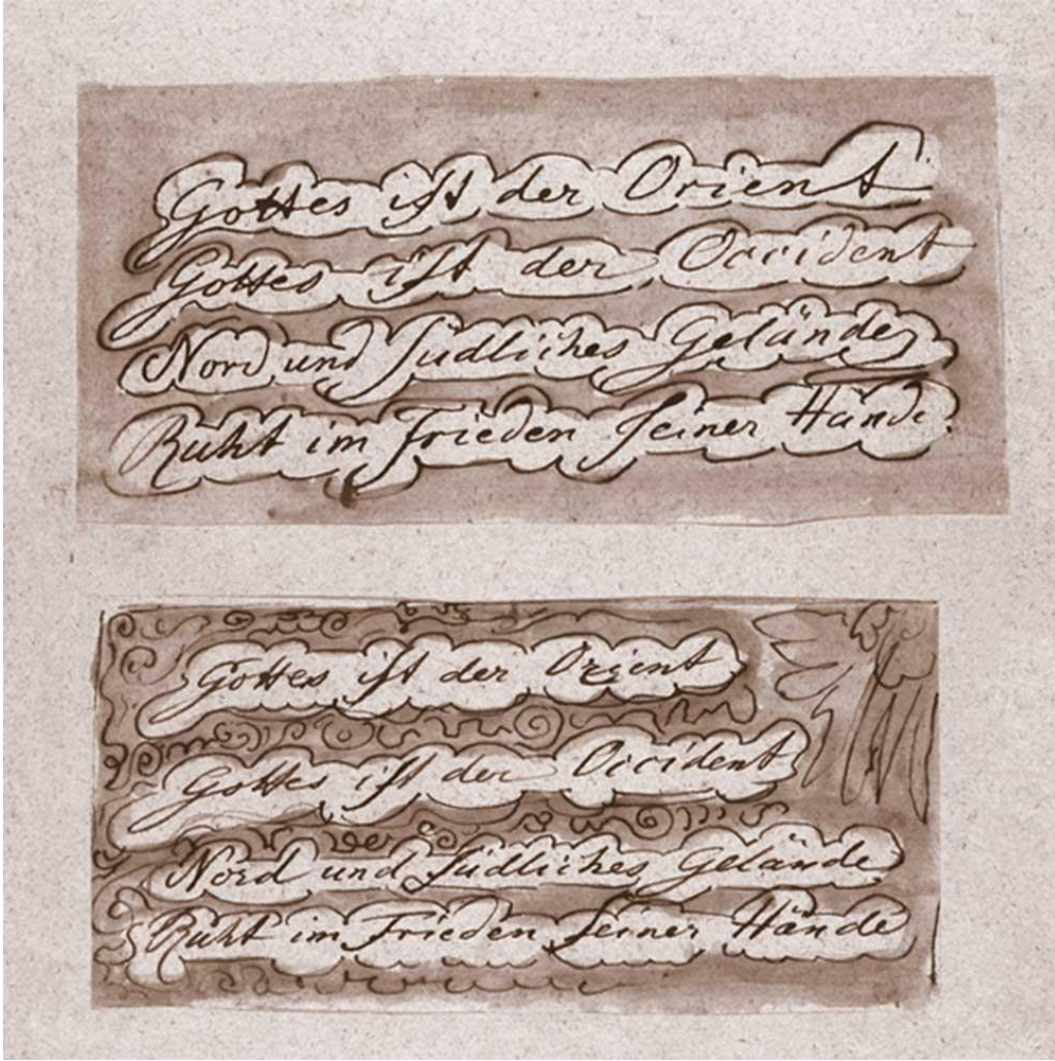 Gottes ist der Orient
Gottes ist der Occident
Nord und südliches Gelände
Ruht im Frieden seiner Hände.
Gottes ist der Orient
Gottes ist der Occident
Nord und südliches Gelände
Ruht im Frieden seiner Hände